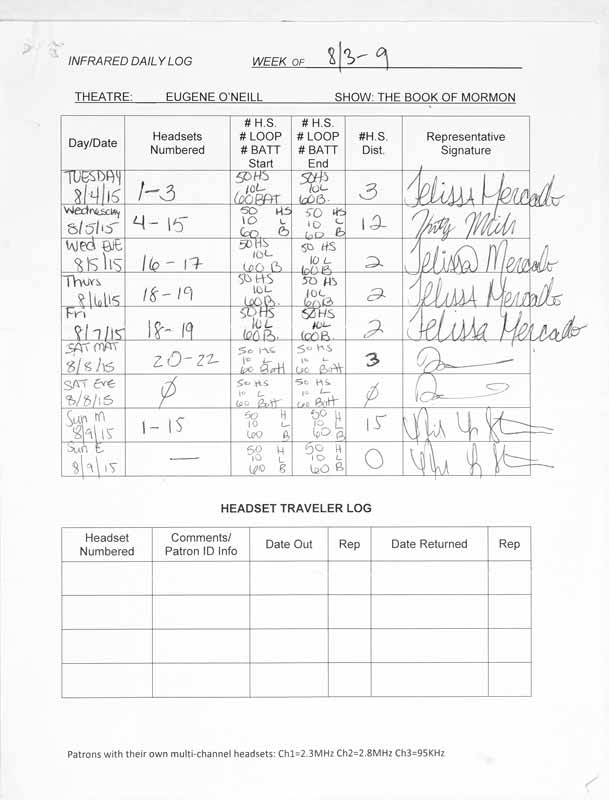 INFRARED DAILY LOG WEEK OF 8/3-9
THEATRE: EUGENE O'NEILL SHOW: THE BOOK OF MORMON
Day/Date Headsets Numbered # H.S. # LOOP # BATT Start # H.S. # LOOP # BATT End #H.S. Dist. Representative Signature
TUESDAY 8/4/15 1-3 50 HS 10L 60 BAT 50 HS 10L 60 B. 3 Jelissa Mercado
Wednesday 8/5/15 4-15 50 HS 10 L 60 B 50 HS 10 L 60 B 12
Wed EVE 8/5/15 16-17 50 HS 10L 60 B 50 HS 10L 60 B 2 Jelissa Mercado
Thurs 8/6/15 18-19 50 HS 10L 60 B. 50 HS 10L 60 B. 2 Jelissa Mercado
Fri 8/7/15 18-19 50 HS 10L 60 B. 50 HS 10L 60 B. 2 Jelissa Mercado
SAT MAT 8/8/15 20-22 50 HS 10 L 60 Batt 50 HS 10 L 60 Batt 3
SAT EVE 8/8/15 Ø 50 HS 10 L 60 Batt 50 HS 10 L 60 Batt Ø
Sun M 8/9/15 1-15 50 H 10 L 60 B 50 H 10 L 60 B 15
Sun E 8/9/15 — 50 H 10 L 60 B 50 H 10 L 60 B 0
HEADSET TRAVELER LOG
Headset Numbered Comments/ Patron ID Info Date Out Rep Date Returned Rep
Patrons with their own multi-channel headsets: Ch1=2.3MHz Ch2=2.8MHz Ch3=95KHz